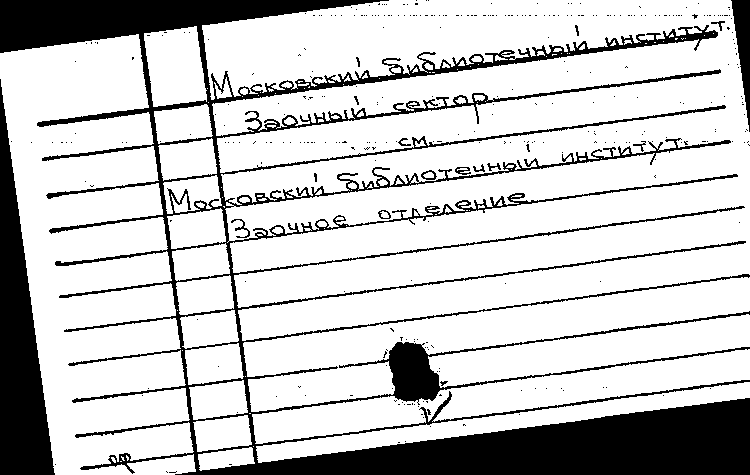 Московский библиотечный институт.
Заочный сектор
см.
Московский библиотечный институт.
Заочное отделение.